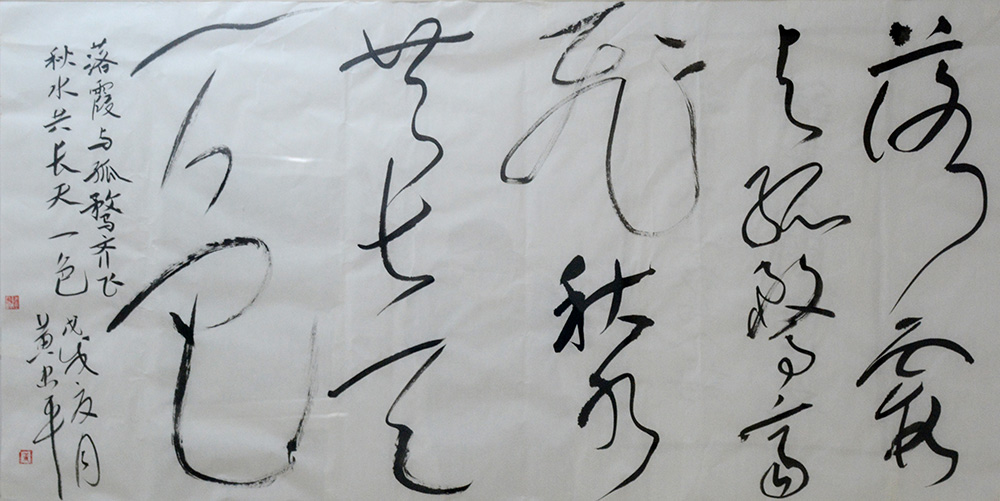 落霞
与孤鹜齐
飞秋水
共长天
一色
落霞与孤鹜齐飞
秋水共长天一色
戊戌夏月